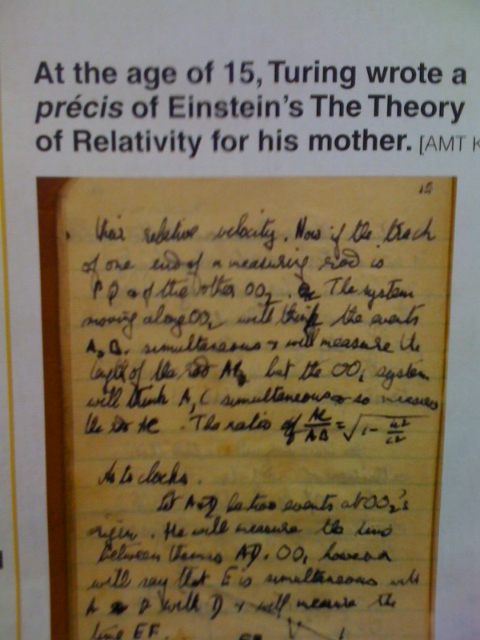 At the age of 15, Turing wrote a
précis of Einstein's The Theory
of Relativity for his mother. [AMT K
15
their relative velocity. Now if the track
of one end of a measuring rod is
P Q & of the other OO₂. The system
moving along OO₂ will think the events
A, B. simultaneous & will measure the
length of the rod AB, but the OO, system
will think A, C simultaneous & so measures
the AC. The ratio of AC/AB = √1 - u²/c²
As to clocks.
Let A & D be two events at OO₂'s
origin. He will measure the time
between them as AD. OO, however
will say that E is simultaneous with
A & with D & will measure the
time EF.